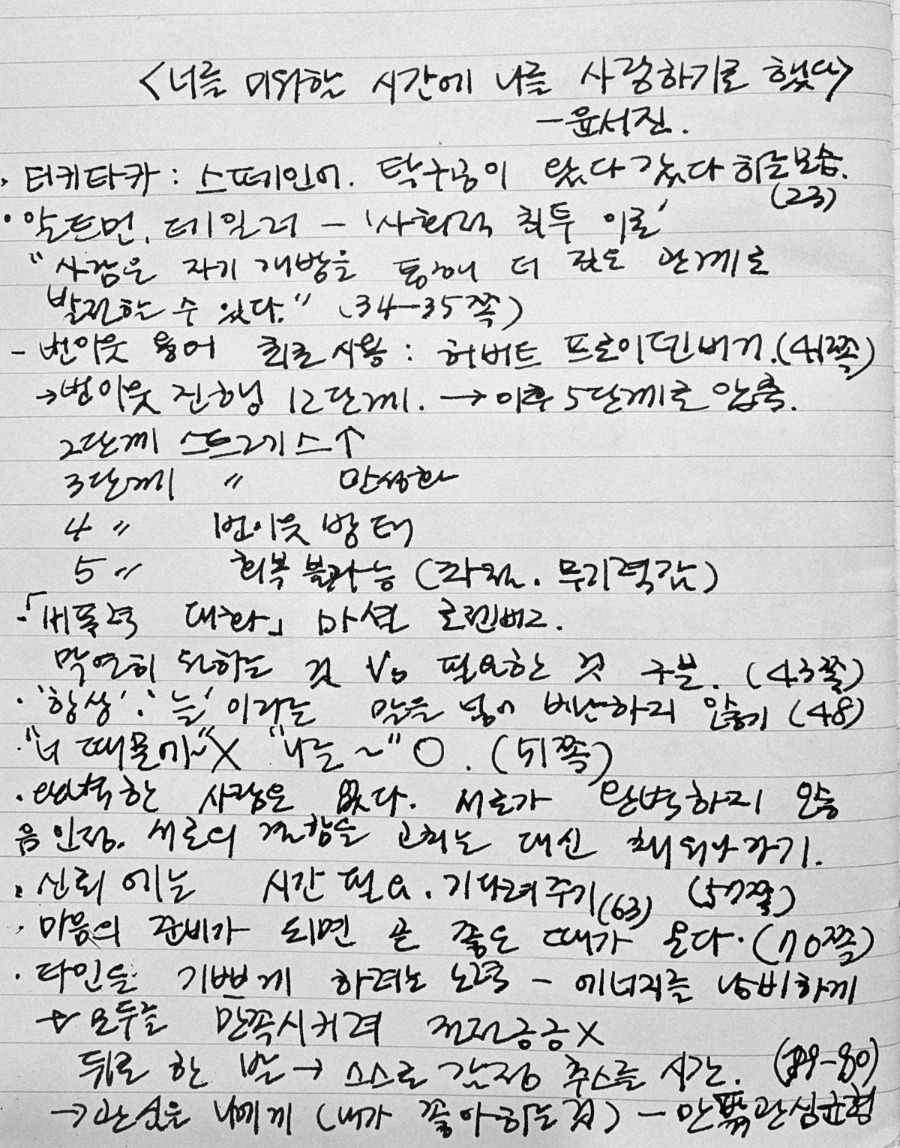 <너를 미워할 시간에 나를 사랑하기로 했다>
- 윤서진.
· 티키타카 : 스페인어. 탁구공이 왔다 갔다 하는 모습.
(23)
· 알트먼, 테일러 - '사회적 침투 이론'
"사람은 자기 개방을 통해 더 깊은 관계로
발전할 수 있다." (34-35쪽)
- 번아웃 용어 최초 사용 : 허버트 프로이덴버거. (41쪽)
→ 번아웃 진행 12단계. → 이후 5단계로 압축.
2단계 스트레스↑
3단계 〃 만성화
4 〃 번아웃 상태
5 〃 회복 불가능 (좌절. 무기력감)
·「비폭력 대화」 마셜 로젠버그.
막연히 원하는 것 Vs 필요한 것 구분. (43쪽)
· '항상'·'늘' 이라는 말을 넣어 비난하지 않기 (48)
· "너 때문에~" X "나는 ~" O. (51쪽)
· 완벽한 사람은 없다. 서로가 완벽하지 않
음 인정. 서로의 결함을 고치는 대신 채워나가기.
· 신뢰에는 시간 필요. 기다려주기 (63) (57쪽)
· 마음의 준비가 되면 곧 좋은 때가 온다. (70쪽)
· 타인을 기쁘게 하려는 노력 - 에너지를 낭비하게
모두를 만족시키려 전전긍긍 X
뒤로 한 발 → 스스로 감정 추스를 시간. (79-80)
→ 관심은 나에게 (내가 좋아하는 것) - 관심균형